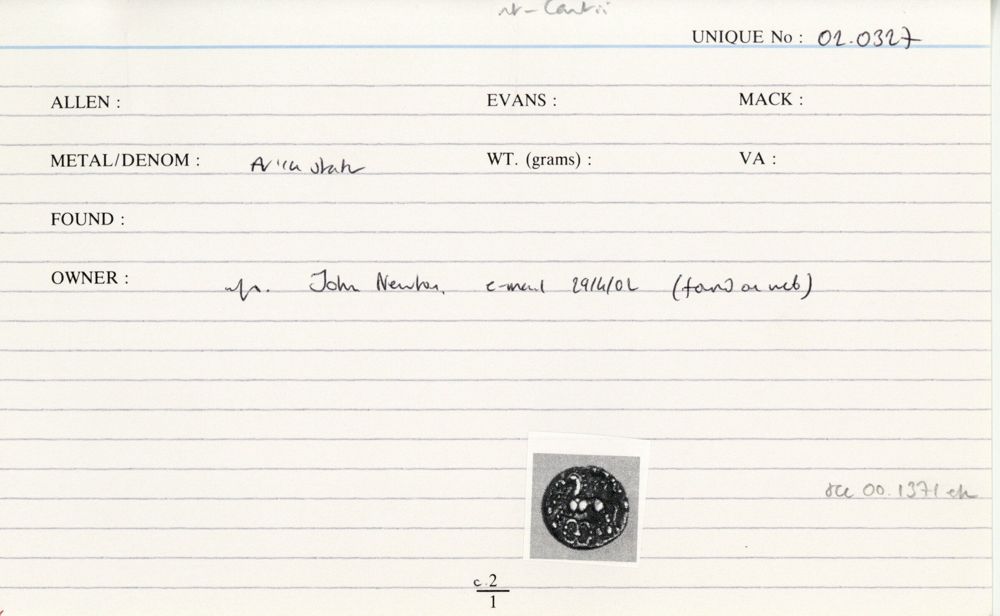 Cantii
UNIQUE No : 02.0327
ALLEN : EVANS : MACK :
METAL/DENOM : WT. (grams) : VA :
FOUND :
OWNER : John Newton, e-mail 29/4/02 (found on web)
see 00.1371
c.2
1